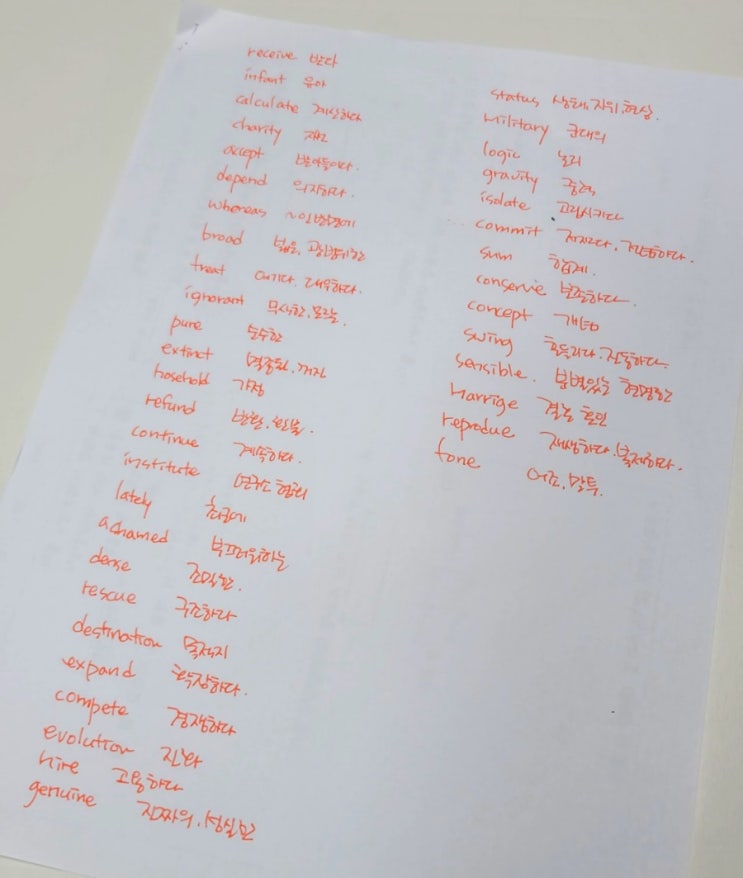 receive 받다
infant 유아
calculate 계산하다
charity 자선
accept 받아들이다.
depend 의지하다.
whereas ~인 반면에
broad 넓은, 광범위한
treat 여기다. 대우하다.
ignorant 무식한, 모르는.
pure 순수한
extinct 멸종된. 꺼진
hosehold 가정
refund 반환. 환불.
continue 계속하다.
institute 연구소 협회
lately 최근에
achamed 부끄러워하는
dense 조밀한.
rescue 구조하다
destination 목적지
expand 확장하다.
compete 경쟁하다
evolution 진화
hire 고용하다
genuine 진짜의. 성실한
status 상태, 지위, 현상.
military 군대의
logic 논리
gravity 중력
isolate 고립시키다
commit 저지르다. 전념하다.
sum 합계.
conserve 보존하다.
concept 개념
swing 흔들리다. 진동하다.
sensible. 분별있는 현명한
harrige 결혼 혼인
reprodue 재생하다. 복제하다.
tone 어조. 말투.